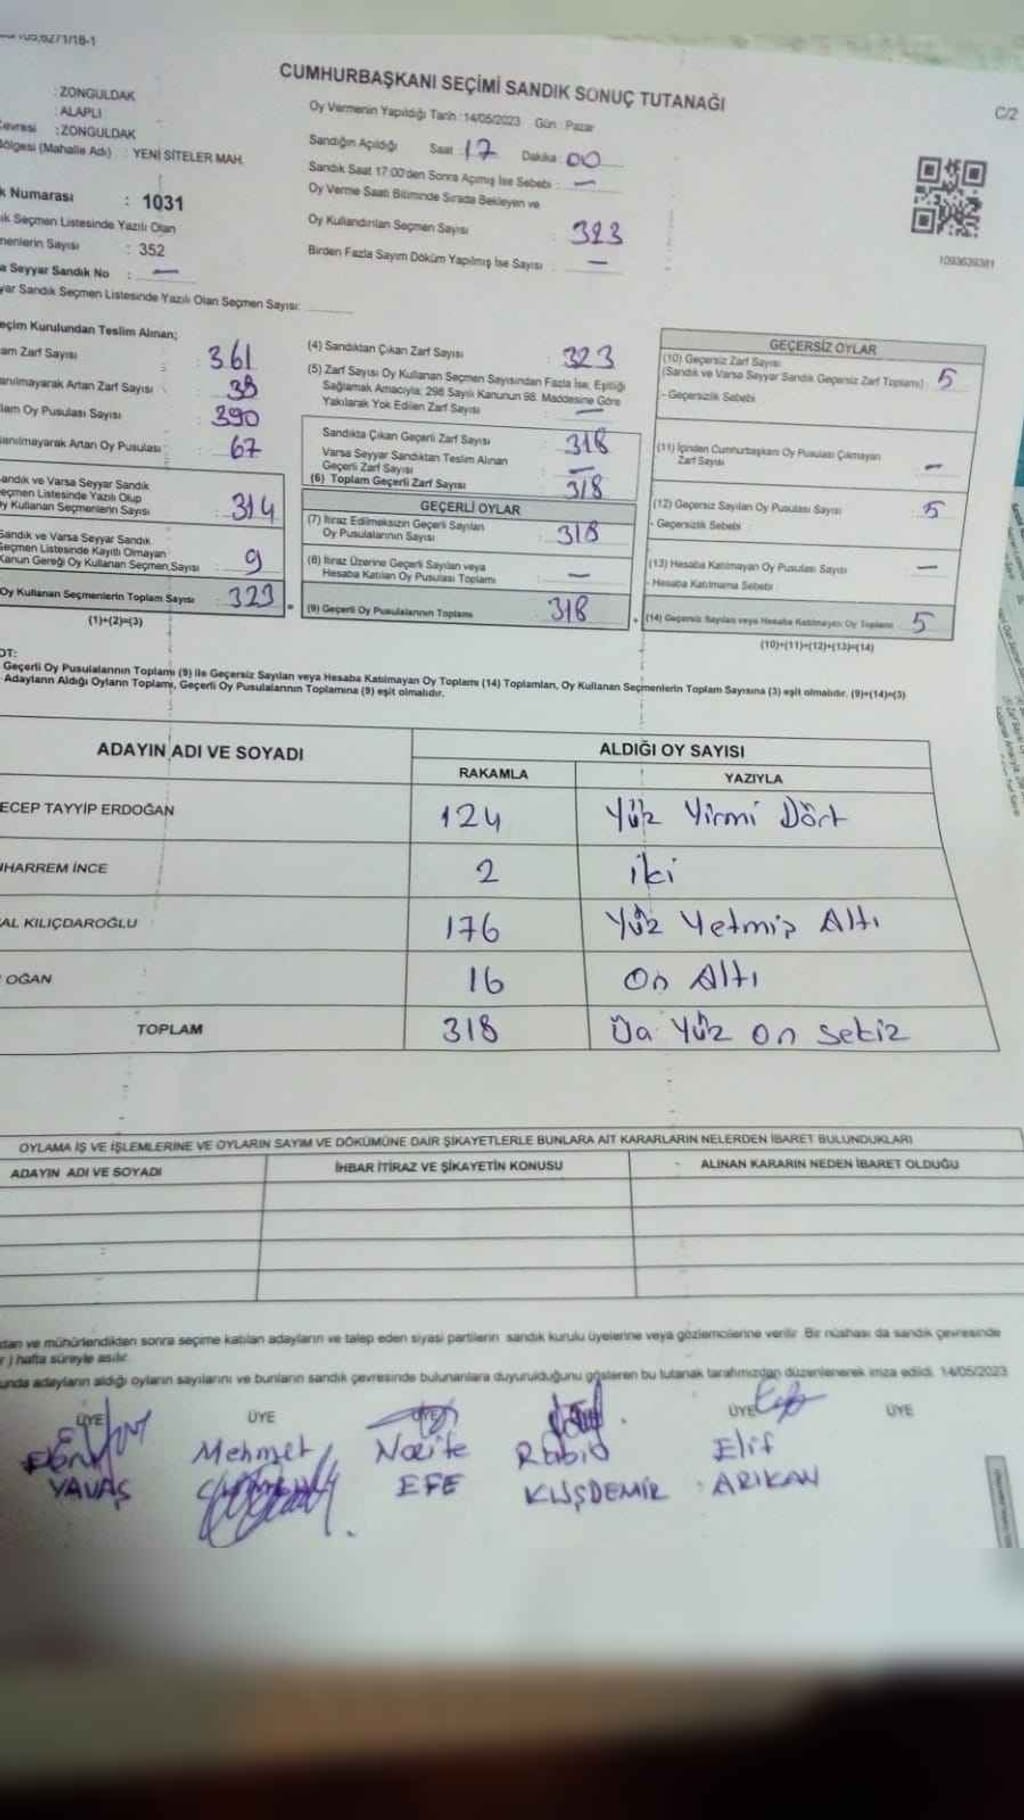 CUMHURBAŞKANI SEÇİMİ SANDIK SONUÇ TUTANAĞI
C/2
: ZONGULDAK
: ALAPLI
: ZONGULDAK
(Mahalle Adı) : YENİ SİTELER MAH.
Oy Vermenin Yapıldığı Tarih : 14/05/2023 Gün : Pazar
Sandığın Açıldığı Saat 17 Dakika 00
Sandık Saat 17:00'den Sonra Açımış İse Sebebi : —
Oy Verme Saati Bitiminde Sırada Bekleyen ve
Oy Kullandırılan Seçmen Sayısı : 323
Birden Fazla Sayım Döküm Yapılmış İse Sayısı : —
1093639381
Numarası : 1031
Seçmen Listesinde Yazılı Olan
Sayısı : 352
Seyyar Sandık No : —
Sandık Seçmen Listesinde Yazılı Olan Seçmen Sayısı:
Kurulundan Teslim Alınan;
Zarf Sayısı : 361
Artan Zarf Sayısı : 38
Oy Pusulası Sayısı : 390
Artan Oy Pusulası : 67
ve Varsa Seyyar Sandık
Listesinde Yazılı Olup
Kullanan Seçmenlerin Sayısı : 314
ve Varsa Seyyar Sandık
Listesinde Kayıtlı Olmayan
Kanun Gereği Oy Kullanan Seçmen Sayısı 9
Oy Kullanan Seçmenlerin Toplam Sayısı 323
(1)+(2)=(3)
(4) Sandıktan Çıkan Zarf Sayısı : 323
(5) Zarf Sayısı Oy Kullanan Seçmen Sayısından Fazla İse, Eşitliği
Sağlamak Amacıyla; 298 Sayılı Kanunun 98. Maddesine Göre
Yakılarak Yok Edilen Zarf Sayısı —
Sandıkta Çıkan Geçerli Zarf Sayısı 318
Varsa Seyyar Sandıktan Teslim Alınan
Geçerli Zarf Sayısı —
(6) Toplam Geçerli Zarf Sayısı 318
GEÇERLİ OYLAR
(7) İtiraz Edilmeksizin Geçerli Sayılan
Oy Pusulalarının Sayısı 318
(8) İtiraz Üzerine Geçerli Sayılan veya
Hesaba Katılan Oy Pusulası Toplamı —
(9) Geçerli Oy Pusulalarının Toplamı 318
GEÇERSİZ OYLAR
(10) Geçersiz Zarf Sayısı
(Sandık ve Varsa Seyyar Sandık Geçersiz Zarf Toplamı) 5
- Geçersizlik Sebebi
(11) İçinden Cumhurbaşkanı Oy Pusulası Çıkmayan
Zarf Sayısı —
(12) Geçersiz Sayılan Oy Pusulası Sayısı : 5
- Geçersizlik Sebebi
(13) Hesaba Katılmayan Oy Pusulası Sayısı —
- Hesaba Katılmama Sebebi
(14) Geçersiz Sayılan veya Hesaba Katılmayan Oy Toplamı 5
(10)+(11)+(12)+(13)=(14)
Geçerli Oy Pusulalarının Toplamı (9) ile Geçersiz Sayılan veya Hesaba Katılmayan Oy Toplamı (14) Toplamları, Oy Kullanan Seçmenlerin Toplam Sayısına (3) eşit olmalıdır. (9)+(14)=(3)
Adayların Aldığı Oyların Toplamı, Geçerli Oy Pusulalarının Toplamına (9) eşit olmalıdır.
ADAYIN ADI VE SOYADI ALDIĞI OY SAYISI
RAKAMLA YAZIYLA
ECEP TAYYİP ERDOĞAN 124 Yüz Yirmi Dört
HARREM İNCE 2 iki
AL KILIÇDAROĞLU 176 Yüz Yetmiş Altı
OĞAN 16 On Altı
TOPLAM 318 Üa Yüz on sekiz
OYLAMA İŞ VE İŞLEMLERİNE VE OYLARIN SAYIM VE DÖKÜMÜNE DAİR ŞİKAYETLERLE BUNLARA AİT KARARLARIN NELERDEN İBARET BULUNDUKLARI
ADAYIN ADI VE SOYADI İHBAR İTİRAZ VE ŞİKAYETİN KONUSU ALINAN KARARIN NEDEN İBARET OLDUĞU
ve mühürlendikten sonra seçime katılan adayların ve talep eden siyasi partilerin sandık kurulu üyelerine veya gözlemcilerine verilir. Bir nüshası da sandık çevresinde
) hafta süreyle asılır.
adayların aldığı oyların sayılarını ve bunların sandık çevresinde bulunanlara duyurulduğunu gösteren bu tutanak tarafımızdan düzenlenerek imza edildi. 14/05/2023
ÜYE ÜYE ÜYE ÜYE ÜYE
Mehmet Naife Rabia Elif
YAVAŞ EFE KUŞDEMİR ARIKAN